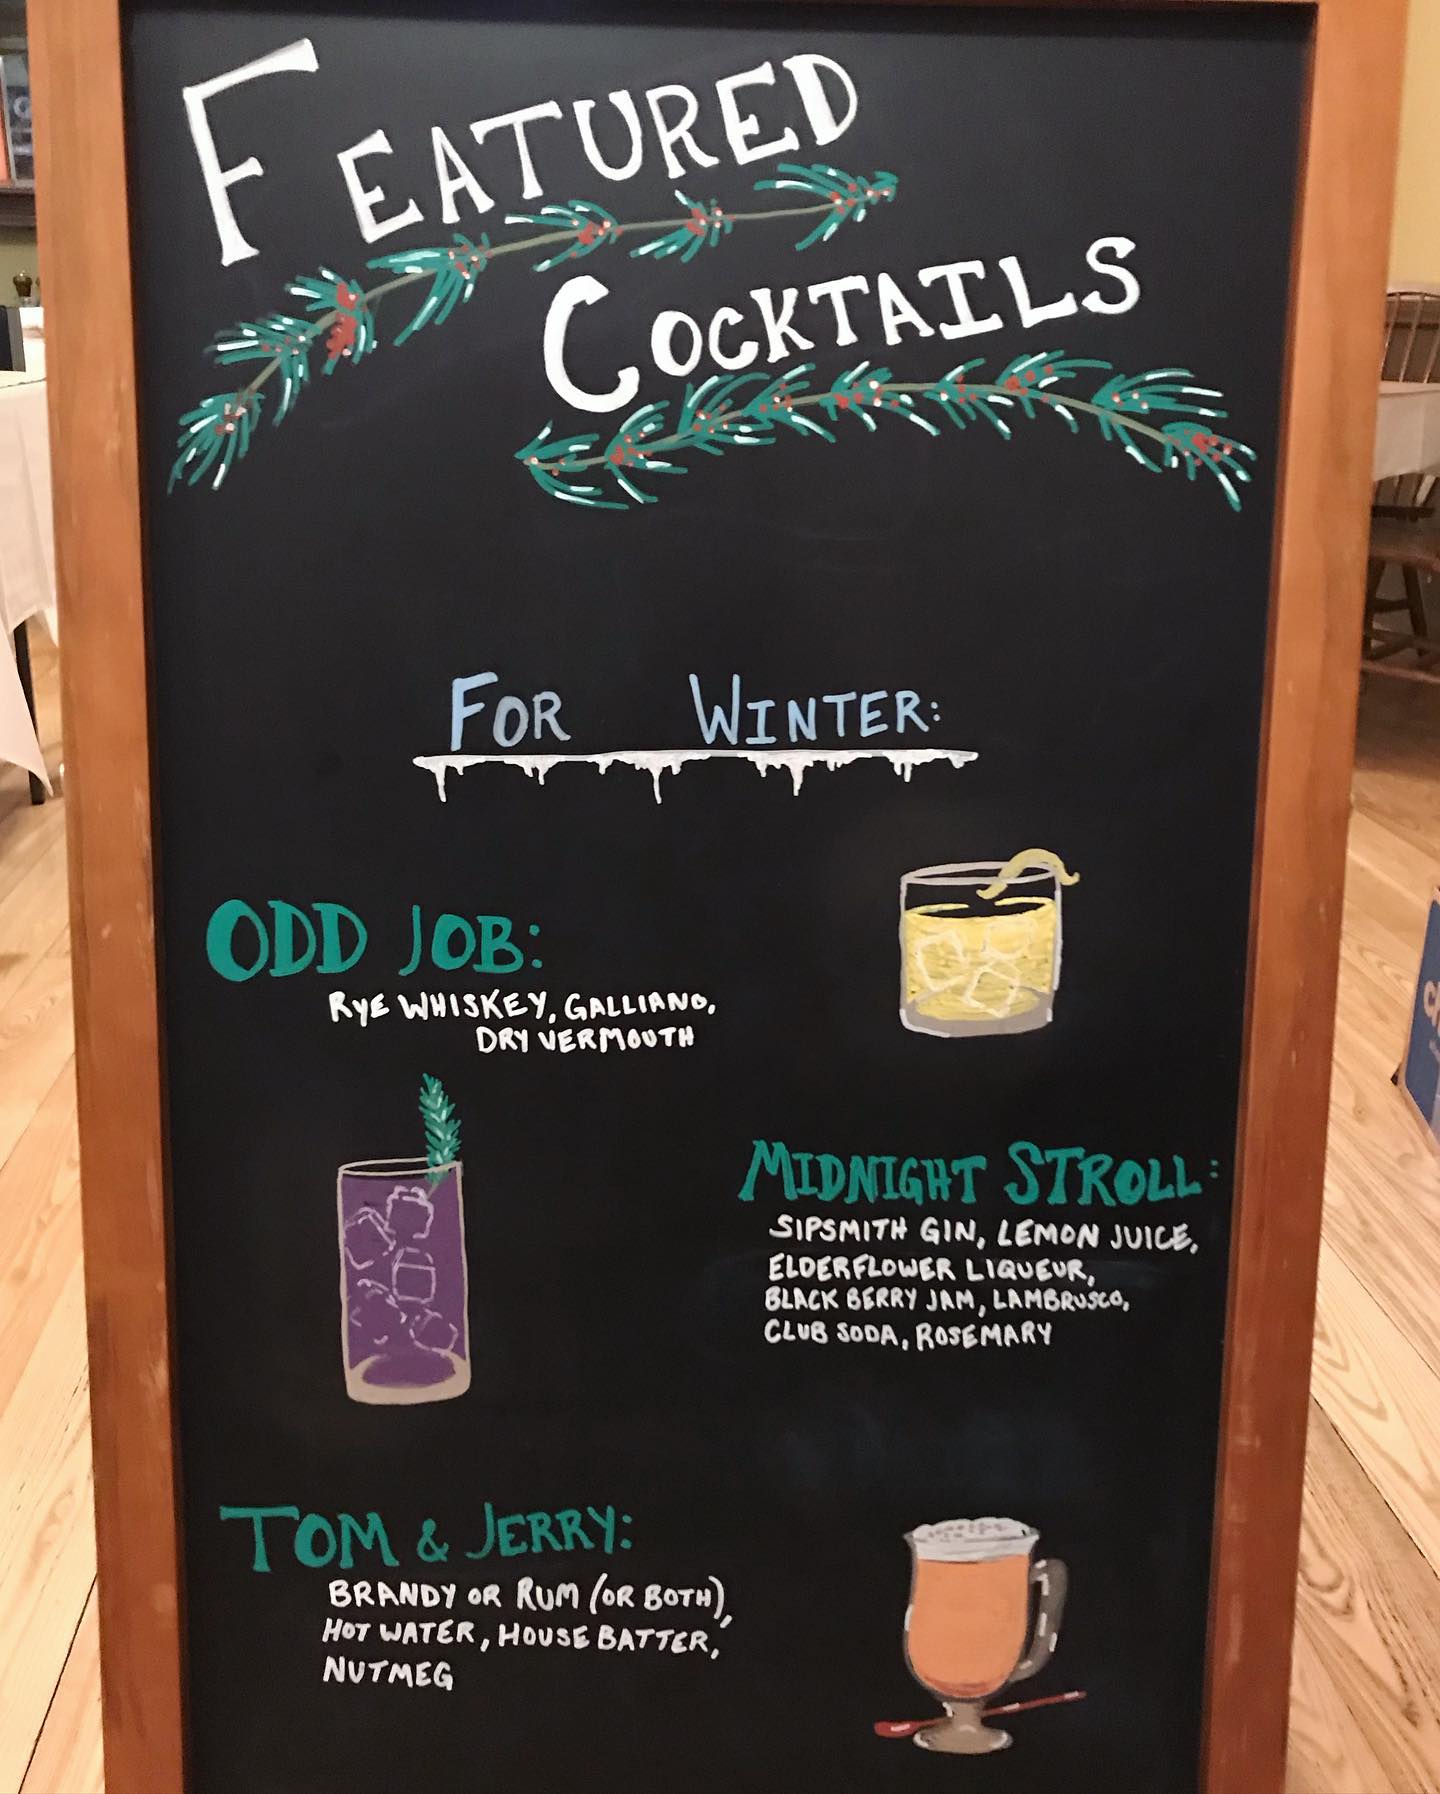 FEATURED
COCKTAILS
FOR WINTER:
ODD JOB:
RYE WHISKEY, GALLIANO,
DRY VERMOUTH
MIDNIGHT STROLL:
SIPSMITH GIN, LEMON JUICE,
ELDERFLOWER LIQUEUR,
BLACK BERRY JAM, LAMBRUSCO,
CLUB SODA, ROSEMARY
TOM & JERRY:
BRANDY OR RUM (OR BOTH),
HOT WATER, HOUSE BATTER,
NUTMEG